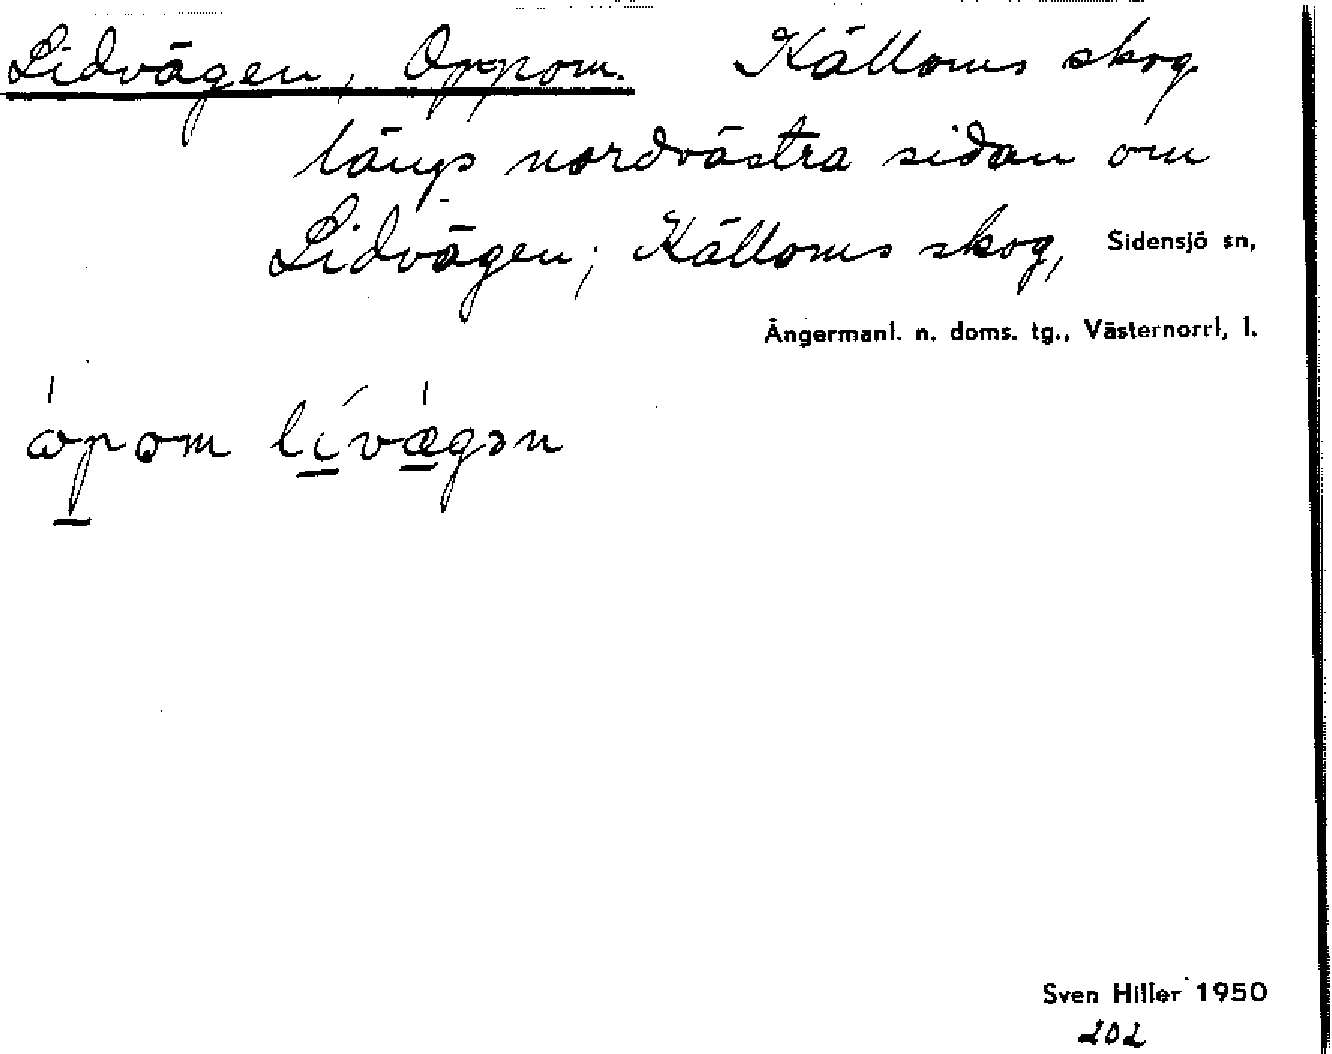 Lidvägen, Oppom. Källoms skog
längs nordvästra sidan om
Lidvägen; Källoms skog, Sidensjö sn,
Ångermanl. n. doms. tg., Västernorrl, l.
ópom lívǽgən
Sven Hiller 1950
202